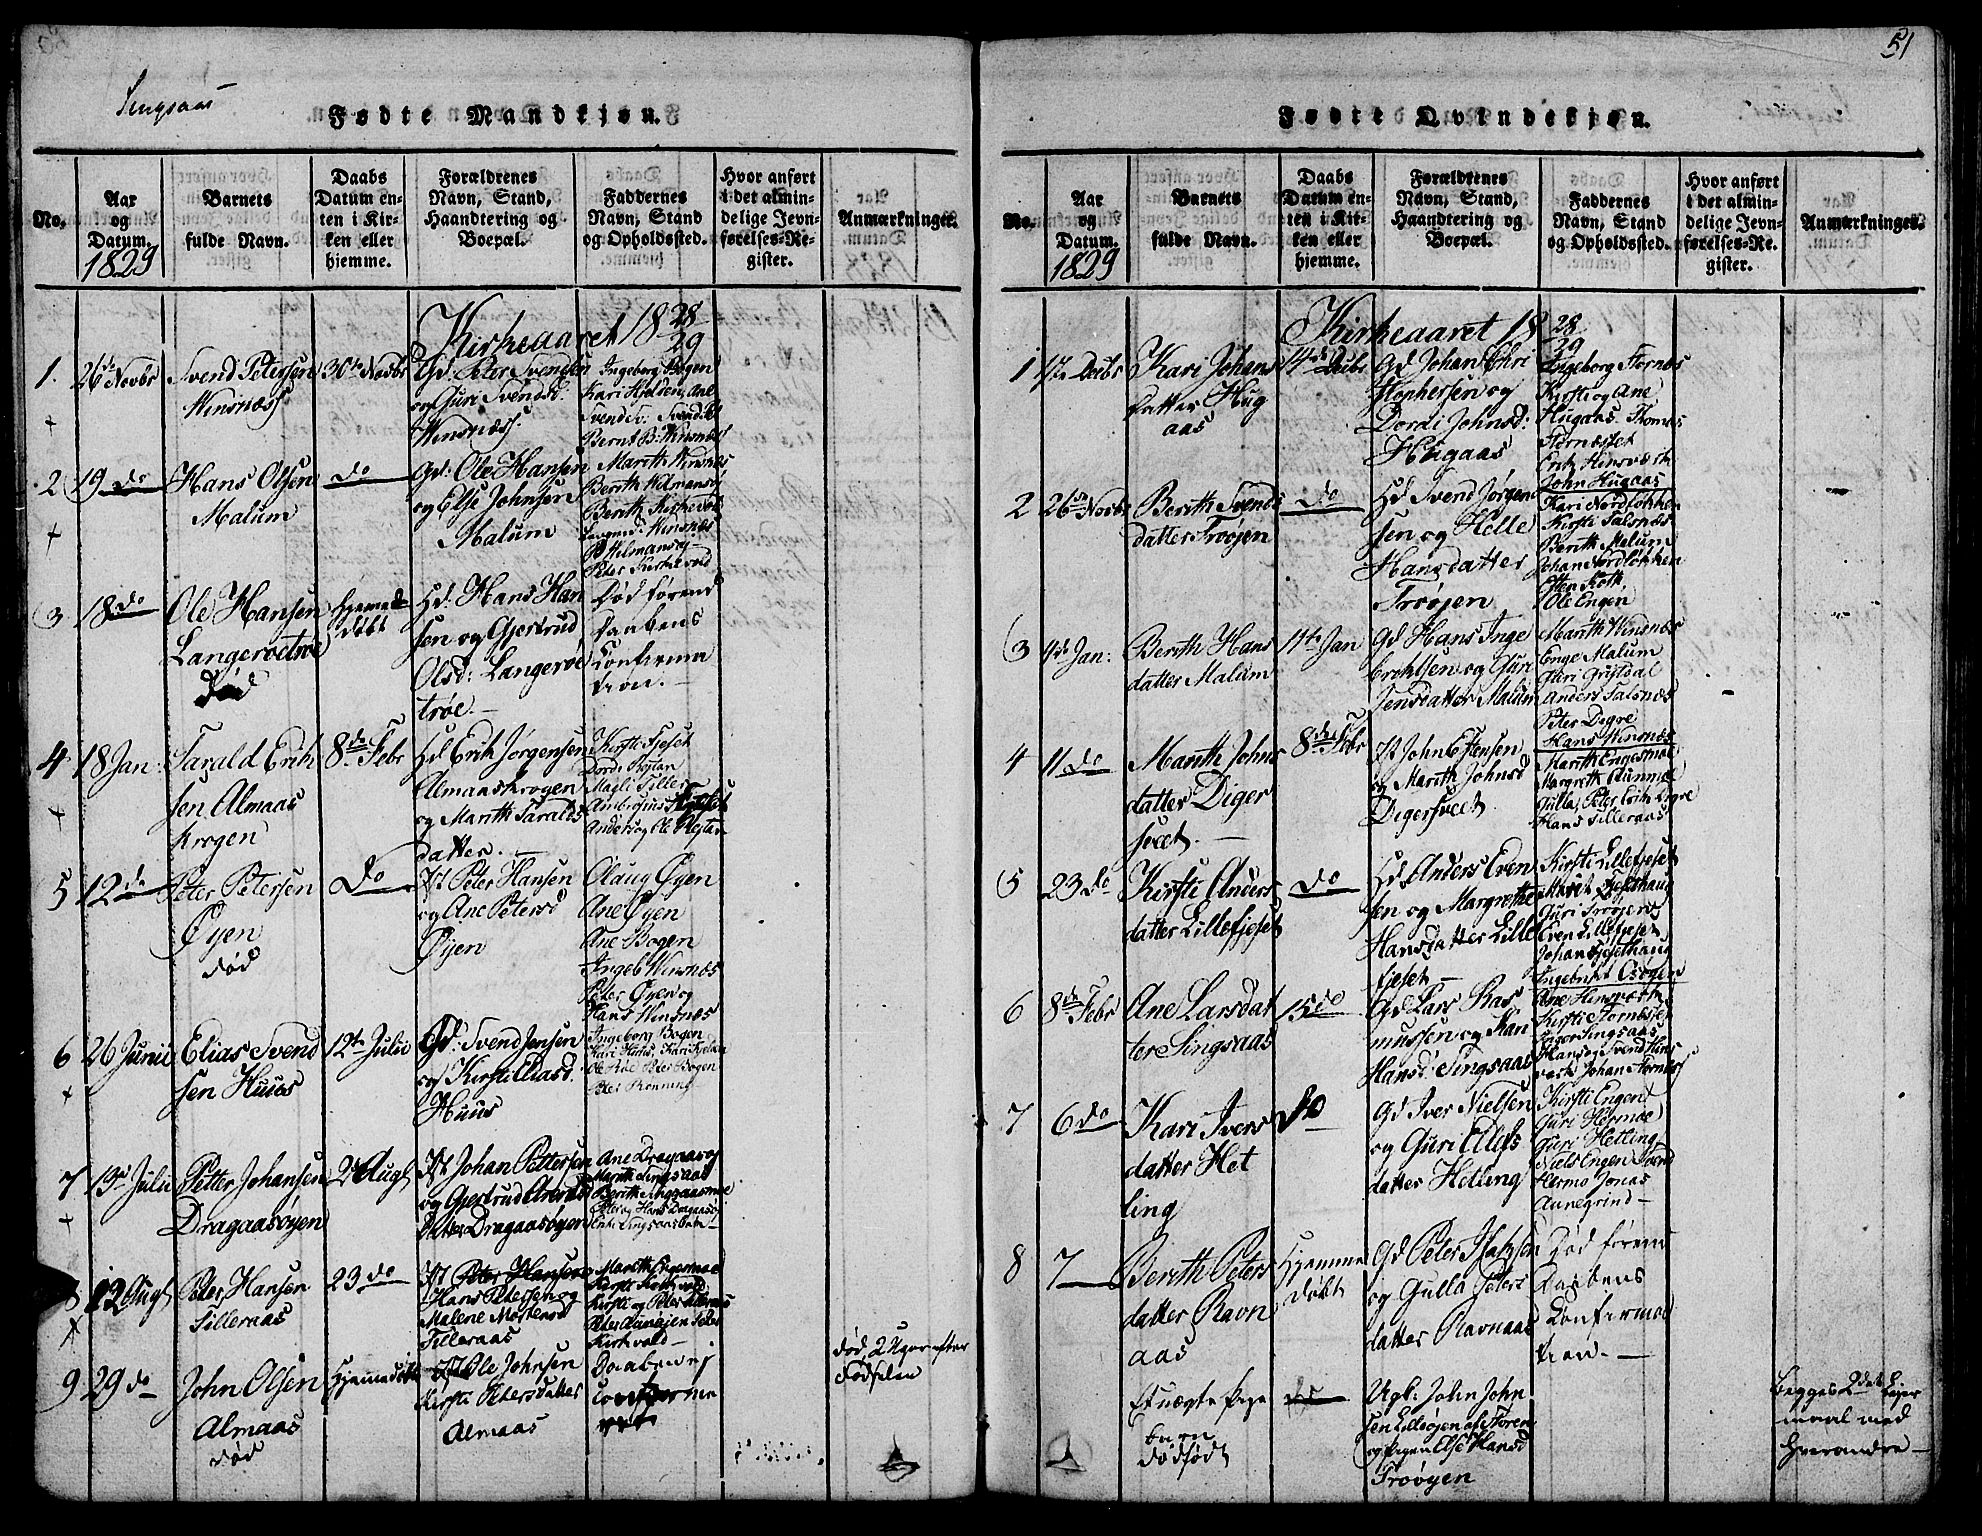 Singsaas
Fødte Mandkjøn.
No.
Aar og Datum. 1829
Barnets fulde Navn.
Daabs Datum enten i Kirken eller hjemme.
Forældrenes Navn, Stand, Haandtering og Boepæl.
Faddernes Navn, Stand og Opholdssted.
Hvor anført i det almindelige Jevnførelses-Register.
Anmærkninger.
Kirkeaaret 18 28/29
1.
26de Novbr
Svend Petersen
Winsnæss
30te Novbr
Gd: Peter Svensen
og Guri Svendsd.
Winsnæss.
Ingeborg Bogen
Kari Kjelden, Ane
Bernt B: Winsnæss
2
19 do
Hans Olsen
Malum
do
Gd: Ole Hansen
og Else Johnsen
Malum
Marith Winsnæs
Berith Wilmansøy
Berith Kirkevold
Winsnæs
Wilmansøy
Peter Kirkevold
3
18 do
Ole Hansen
Langerøetrøe
Død
Hjemme
døbt
Hd: Hans Han
sen og Gjertrud
Olsd: Langerøe
trøe.
Død førend
Daabens
Confirma
tion.
4
18 Jan:
Tarald Erik
sen Almaas
krogen
8de Febr
Hd Erik Jørgensen
Almaaskrogen
og Marith Taralds
datter.
Kirsti Fjeset
Magli Tiller
Ambrosius
Anders og Ole
5
12 do
Peter Petersen
Øyen
død
Do
Pet Hansen
og Ane Petersd
Øyen
Olaug Øyen
Ane Øyen
Ane Bogen
Ingeb Winsnæs
Peter Øyen og
Hans Winsnæs
6
26 Junii
Elias Svend
sen Huus
12te Julii
Gd: Svend Jensen
og Kirsti Eliasd.
Huus
Ingeborg Bogen
Peter Bogen
Peter Rønning
7
13de Julii
Petter Johansen
Dragaasøyen
2de Augs
Johan Pettersen
og Gjertrud
Dragaasøyen
Ane Dragaas og
Marith Singsaas
Berith Singsaasmoe
Peter og Hans Dragaas
8
12 Augs
Peter Hansen
Tilleraas
23 do
Peter Hansen
Hans Petersen og
Malene Mortensd
Tilleraas
Marith Engesmoe
Kirsti Kirkvold
Kirsti og Peter Tilleraas
Kirkvold
9
29 do
John Olsen
Almaas
død
Hjemmedøbt
Ole Johnsen
Kirsti Petersdatter
Almaas
Daaben ej
confirme
ret
død 2 Uger efter
Fødselen
51
Fødte Qvindekjøn.
No.
Aar og Datum. 1829
Barnets fulde Navn.
Daabs Datum enten i Kirken eller hjemme.
Forældrenes Navn, Stand, Haandtering og Boepæl.
Faddernes Navn, Stand og Opholdssted.
Hvor anført i det almindelige Jevnførelses-Register.
Anmærkninger.
Kirkeaaret 18 28/29
1
Kari Johans
datter Hug
aas
Gd Johan Chri
stophersen og
Dordi Johnsd:
Hugaas
Ingeborg Fornæs
Kirsti og Ane
Hugaas Thomas
Fornæstet
Erik Hinsværk
John Hugaas
2
26de Novbr
Berith Svends
datter Trøøjen
do
Hd Svend Jørgen
sen og Helle
Hansdatter
Trøøjen
Kari Nordløkken
Kirsti Talsnæs
Berith Malum
Johan Nordløkken
Ole Engen
3
4de Jan:
Berith Hans
datter Malum
11te Jan
Gd Hans Inge
brektsen og Guri
Jensdatter Malum
Marith Winsnæs
Enge Malum
Anders Talsnæs
Peter Digre
Hans Winsnæs
4
11 do
Marith Johns
datter Diger
sveet
8de Febr
John Estensen
og Marith Johnsd
Digersveet
Marith Engesmoe
Margreth
Gulla, Peter Erik Digre
Hans Tilleraas
5
23 do
Kirsti Anders
datter Lillefjeset
do
Hd Anders Even
sen og Margrethe
Hansdatter Lille
fjeset
Kirsti Lillefjeset
Marit Fjeselhaug
Guri Trøøjen
Even Lillefjeset
Johan Fjeselhaug
6
8de Febr
Ane Larsdat
ter Singsaas
15 do
Gd Lars Ras
mussen og Kari
Hansd: Singsaas
Ane Hinsværk
Kirsti Fornæstet
Inger Singsaas
Hans og Svend Hins
værk Johan Fornæss
7
6 do
Kari Ivers
datter Het
ling
Do
Gd Iver Nielsen
og Guri Ellefs
datter Hetling
Kirsti Engen
Guri Hermoe
Guri Hetling
Niels Engen Svend
Hermo Jonas
Aunegrind
8
7
Berith Peters
datter Ravn
aas
Hjemme
døbt
Gd Peter
og Gulla Peters
datter Ravnaas
Død føren
Daabens
Confirma
tion.
Et uægte Pige
barn
dødfødt
do
Ugl: John John
sen Lilleøjen af Støren
og Pigen Else Hansd
Trøøyen
Begges 2det Leier
maal med
hverandre